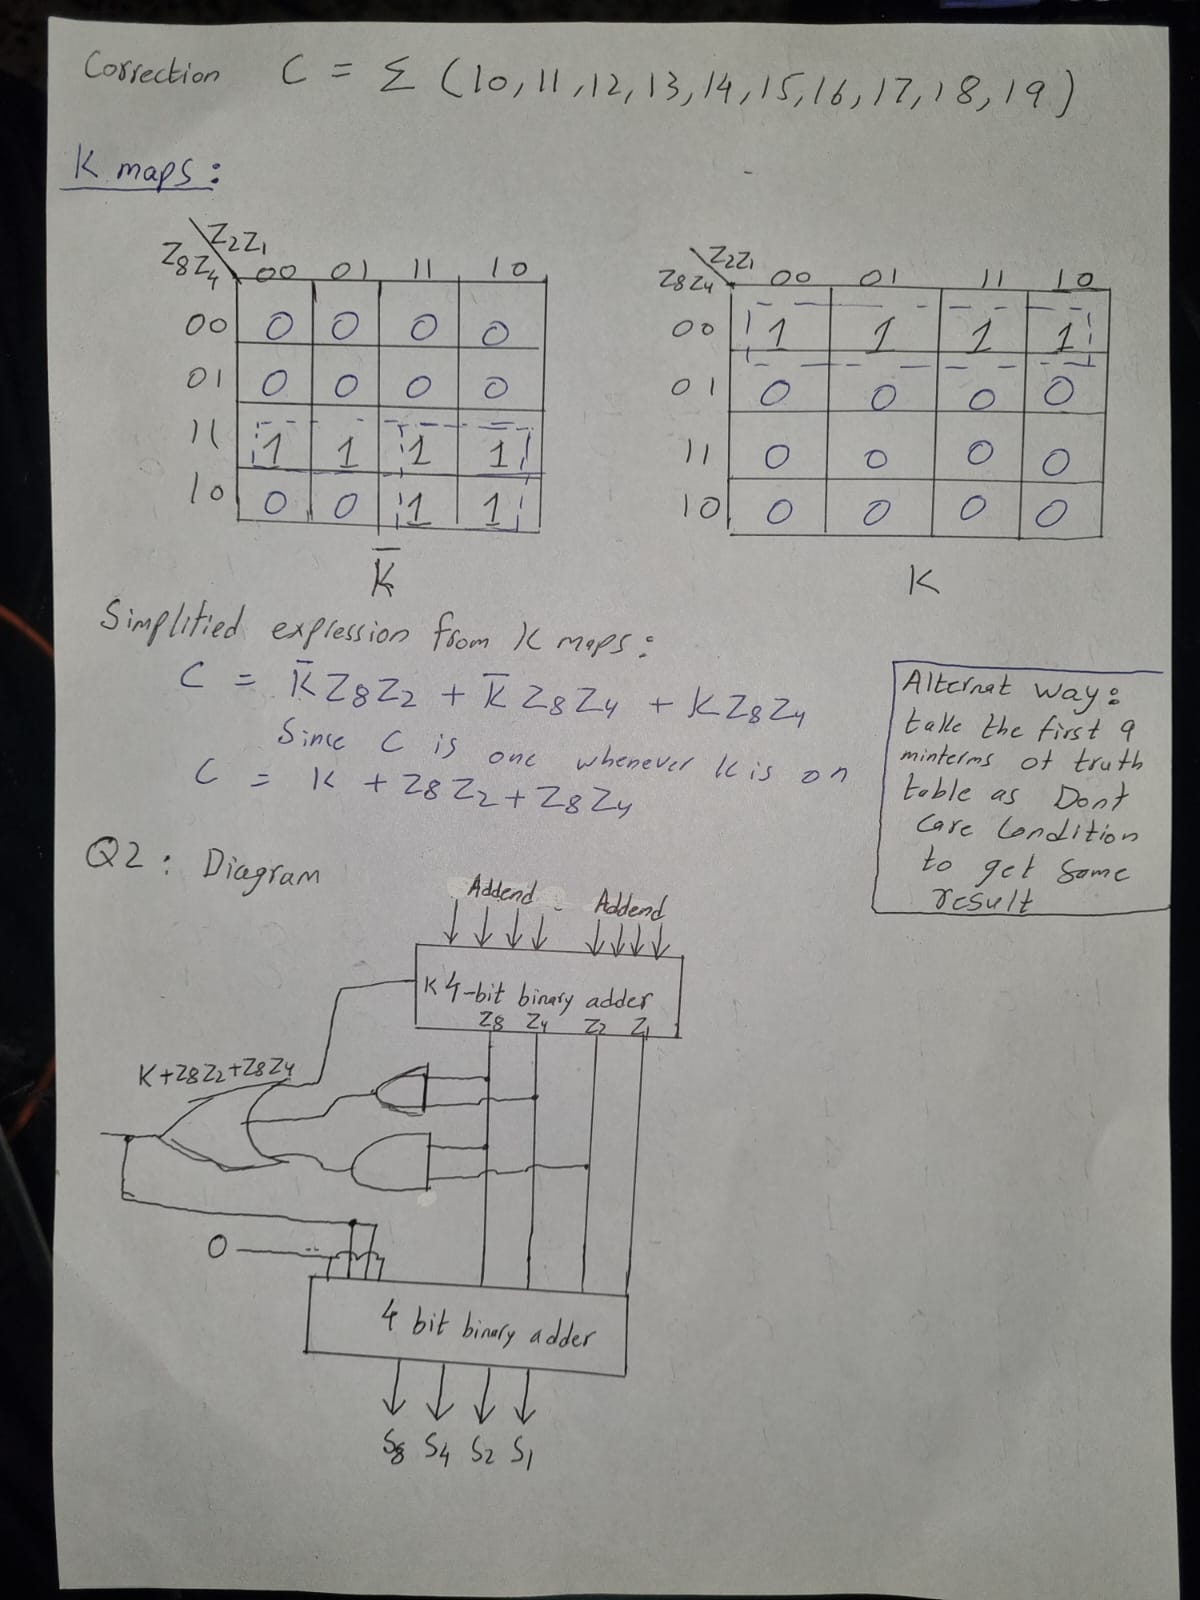 Correction C = Σ (10,11,12,13,14,15,16,17,18,19)
K maps:
Z2Z1
Z8Z4 00 01 11 10
00 0 0 0 0
01 0 0 0 0
11 1 1 1 1
10 0 0 1 1
K̅
Z2Z1
Z8Z4 00 01 11 10
00 1 1 1 1
01 0 0 0 0
11 0 0 0 0
10 0 0 0 0
K
Simplified expression from K maps:
C = K̅Z8Z2 + K̅Z8Z4 + KZ8Z4
Since C is one whenever K is on
C = K + Z8Z2 + Z8Z4
Alternat way:
take the first 9
minterms of truth
table as Dont
Care Condition
to get Same
result
Q2: Diagram
Addend Addend
K 4-bit binary adder
Z8 Z4 Z2 Z1
K+Z8Z2+Z8Z4
0
4 bit binary adder
S8 S4 S2 S1